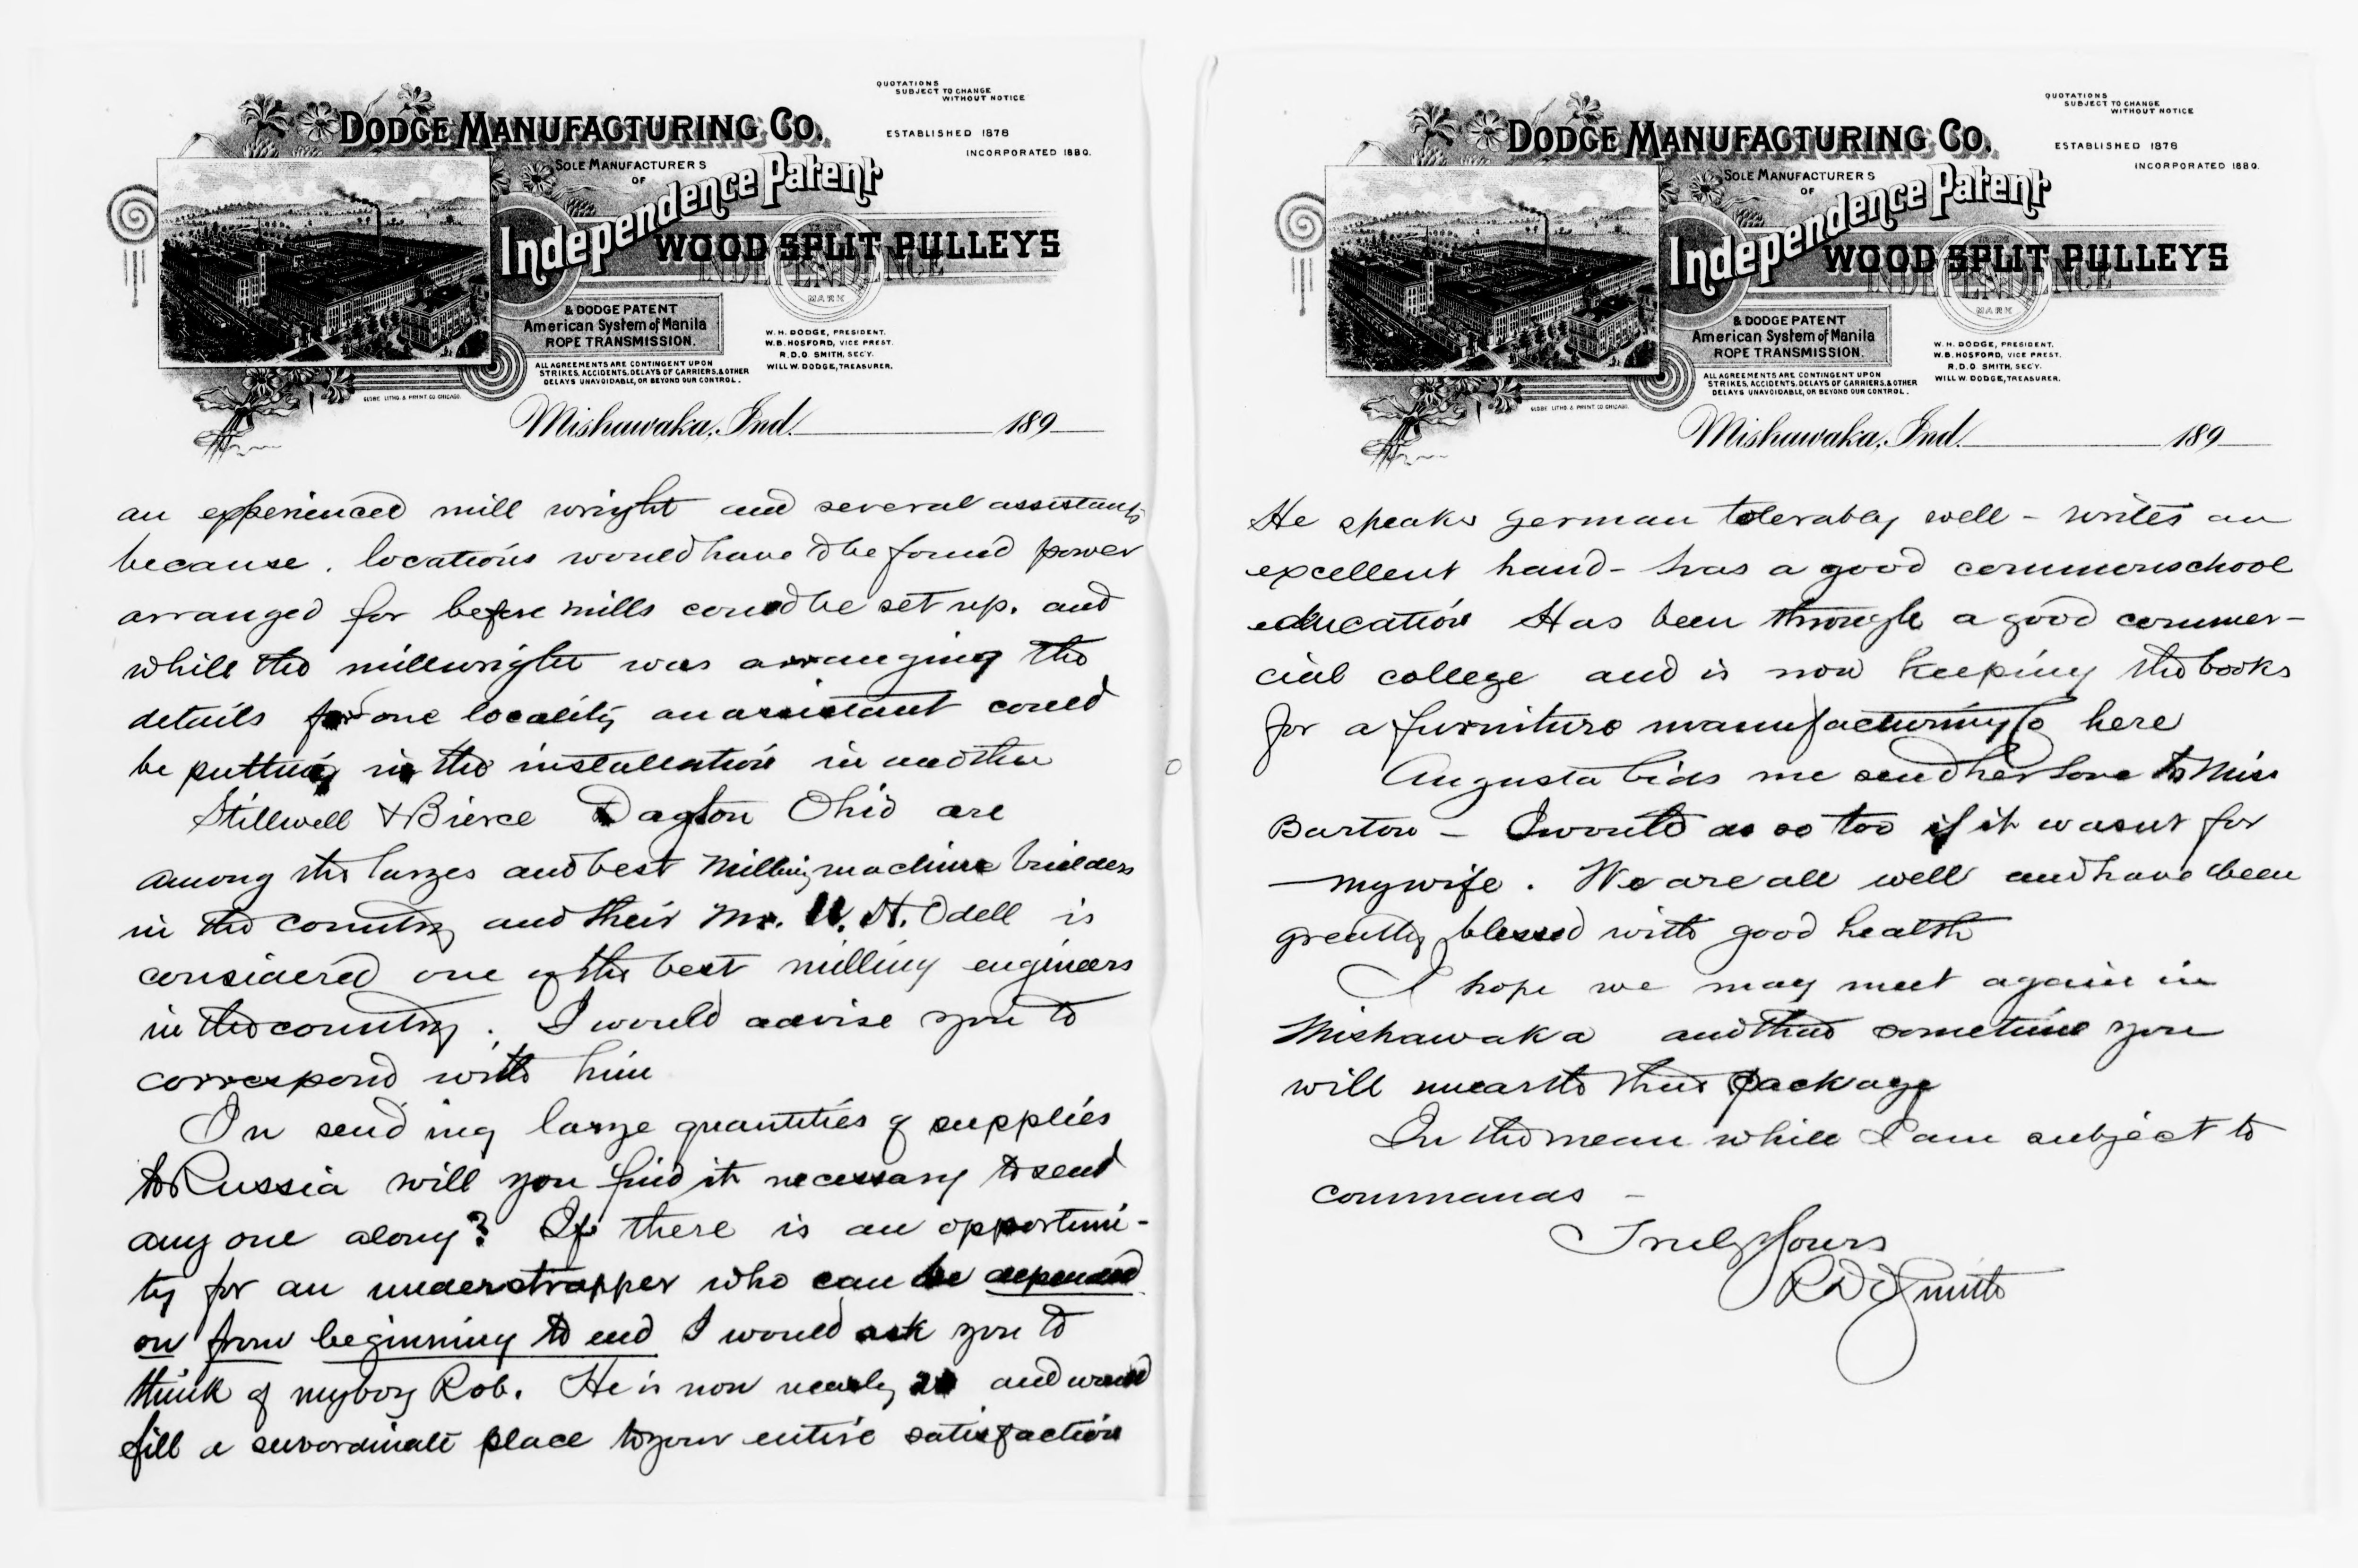 QUOTATIONS
SUBJECT TO CHANGE
WITHOUT NOTICE
DODGE MANUFACTURING CO.
ESTABLISHED 1878
INCORPORATED 1880.
SOLE MANUFACTURERS
OF
Independence Patent
WOOD SPLIT PULLEYS
INDEPENDENCE
MARK
& DODGE PATENT
American System of Manila
ROPE TRANSMISSION.
W. H. DODGE, PRESIDENT.
W. B. HOSFORD, VICE PREST.
R. D. O. SMITH, SEC'Y.
WILL W. DODGE, TREASURER.
ALL AGREEMENTS ARE CONTINGENT UPON
STRIKES, ACCIDENTS, DELAYS OF CARRIERS, & OTHER
DELAYS UNAVOIDABLE, OR BEYOND OUR CONTROL.
GLOBE LITHO. & PRINT. CO CHICAGO.
Mishawaka, Ind. 189
an experienced mill wright and several assistants
because. locations would have to be found power
arranged for before mills could be set up. and
while the millwright was arranging the
details for one locality an assistant could
be putting in the installation in another
Stillwell & Bierce Dayton Ohio are
among the larges and best Milling machine builders
in the country and their Mr. U. H. Odell is
considered one of the best milling engineers
in the country. I would advise you to
correspond with him
In sending large quantities of supplies
to Russia will you find it necessary to send
any one along? If there is an opportuni-
ty for an understrapper who can be depended
on from beginning to end I would ask you to
think of my boy Rob. He is now nearly and would
fill a subordinate place to your entire satisfaction
QUOTATIONS
SUBJECT TO CHANGE
WITHOUT NOTICE
DODGE MANUFACTURING CO.
ESTABLISHED 1878
INCORPORATED 1880.
SOLE MANUFACTURERS
OF
Independence Patent
WOOD SPLIT PULLEYS
INDEPENDENCE
MARK
& DODGE PATENT
American System of Manila
ROPE TRANSMISSION.
W. H. DODGE, PRESIDENT.
W. B. HOSFORD, VICE PREST.
R. D. O. SMITH, SEC'Y.
WILL W. DODGE, TREASURER.
ALL AGREEMENTS ARE CONTINGENT UPON
STRIKES, ACCIDENTS, DELAYS OF CARRIERS, & OTHER
DELAYS UNAVOIDABLE, OR BEYOND OUR CONTROL.
GLOBE LITHO. & PRINT. CO CHICAGO.
Mishawaka, Ind. 189
He speaks german tolerably well - writes an
excellent hand - has a good common school
education Has been through a good commer-
cial college and is now keeping the books
for a furniture manufacturing Co here
Augusta bids me send her love to Miss
Barton - I would do so too if it wasnt for
my wife. We are all well and have been
greatly blessed with good health
I hope we may meet again in
Mishawaka and that sometime you
will unearth that package
In the mean while I am subject to
commands -
Truly Yours
R D O Smith